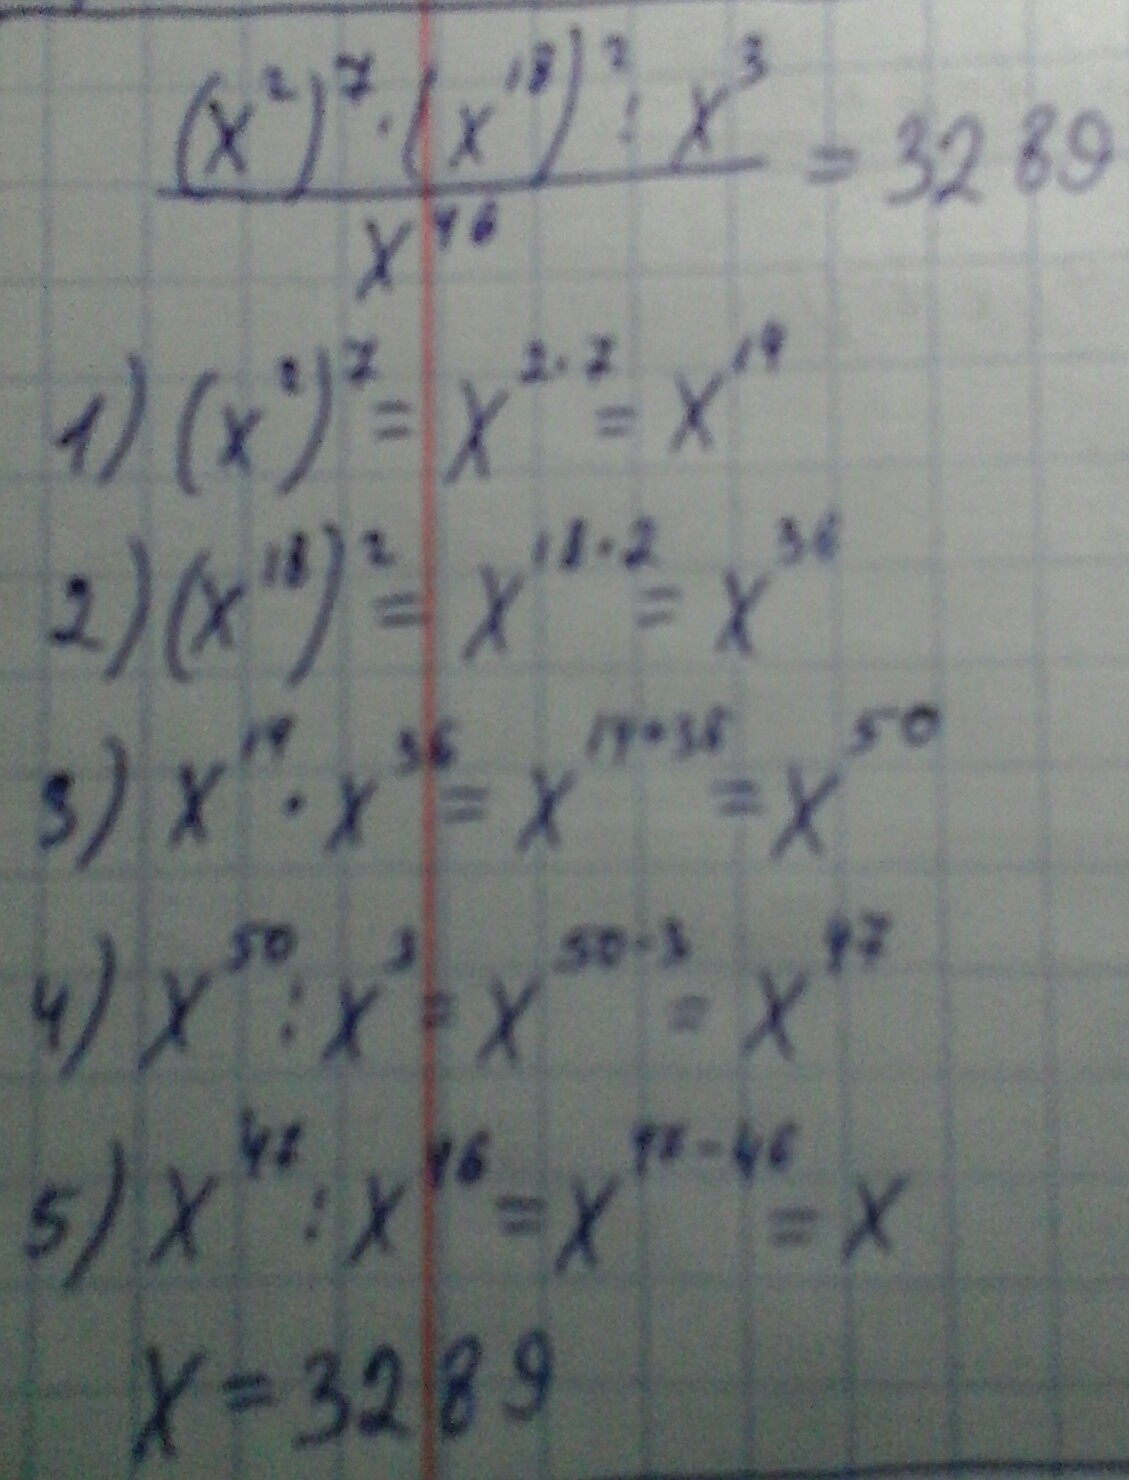 (x²)⁷ · (x¹⁸)² : x³ = 3289
x⁴⁶
1) (x²)⁷ = x²·⁷ = x¹⁴
2) (x¹⁸)² = x¹⁸·² = x³⁶
3) x¹⁴ · x³⁶ = x¹⁴⁺³⁶ = x⁵⁰
4) x⁵⁰ : x³ = x⁵⁰⁻³ = x⁴⁷
5) x⁴⁷ : x⁴⁶ = x⁴⁷⁻⁴⁶ = x
x = 3289